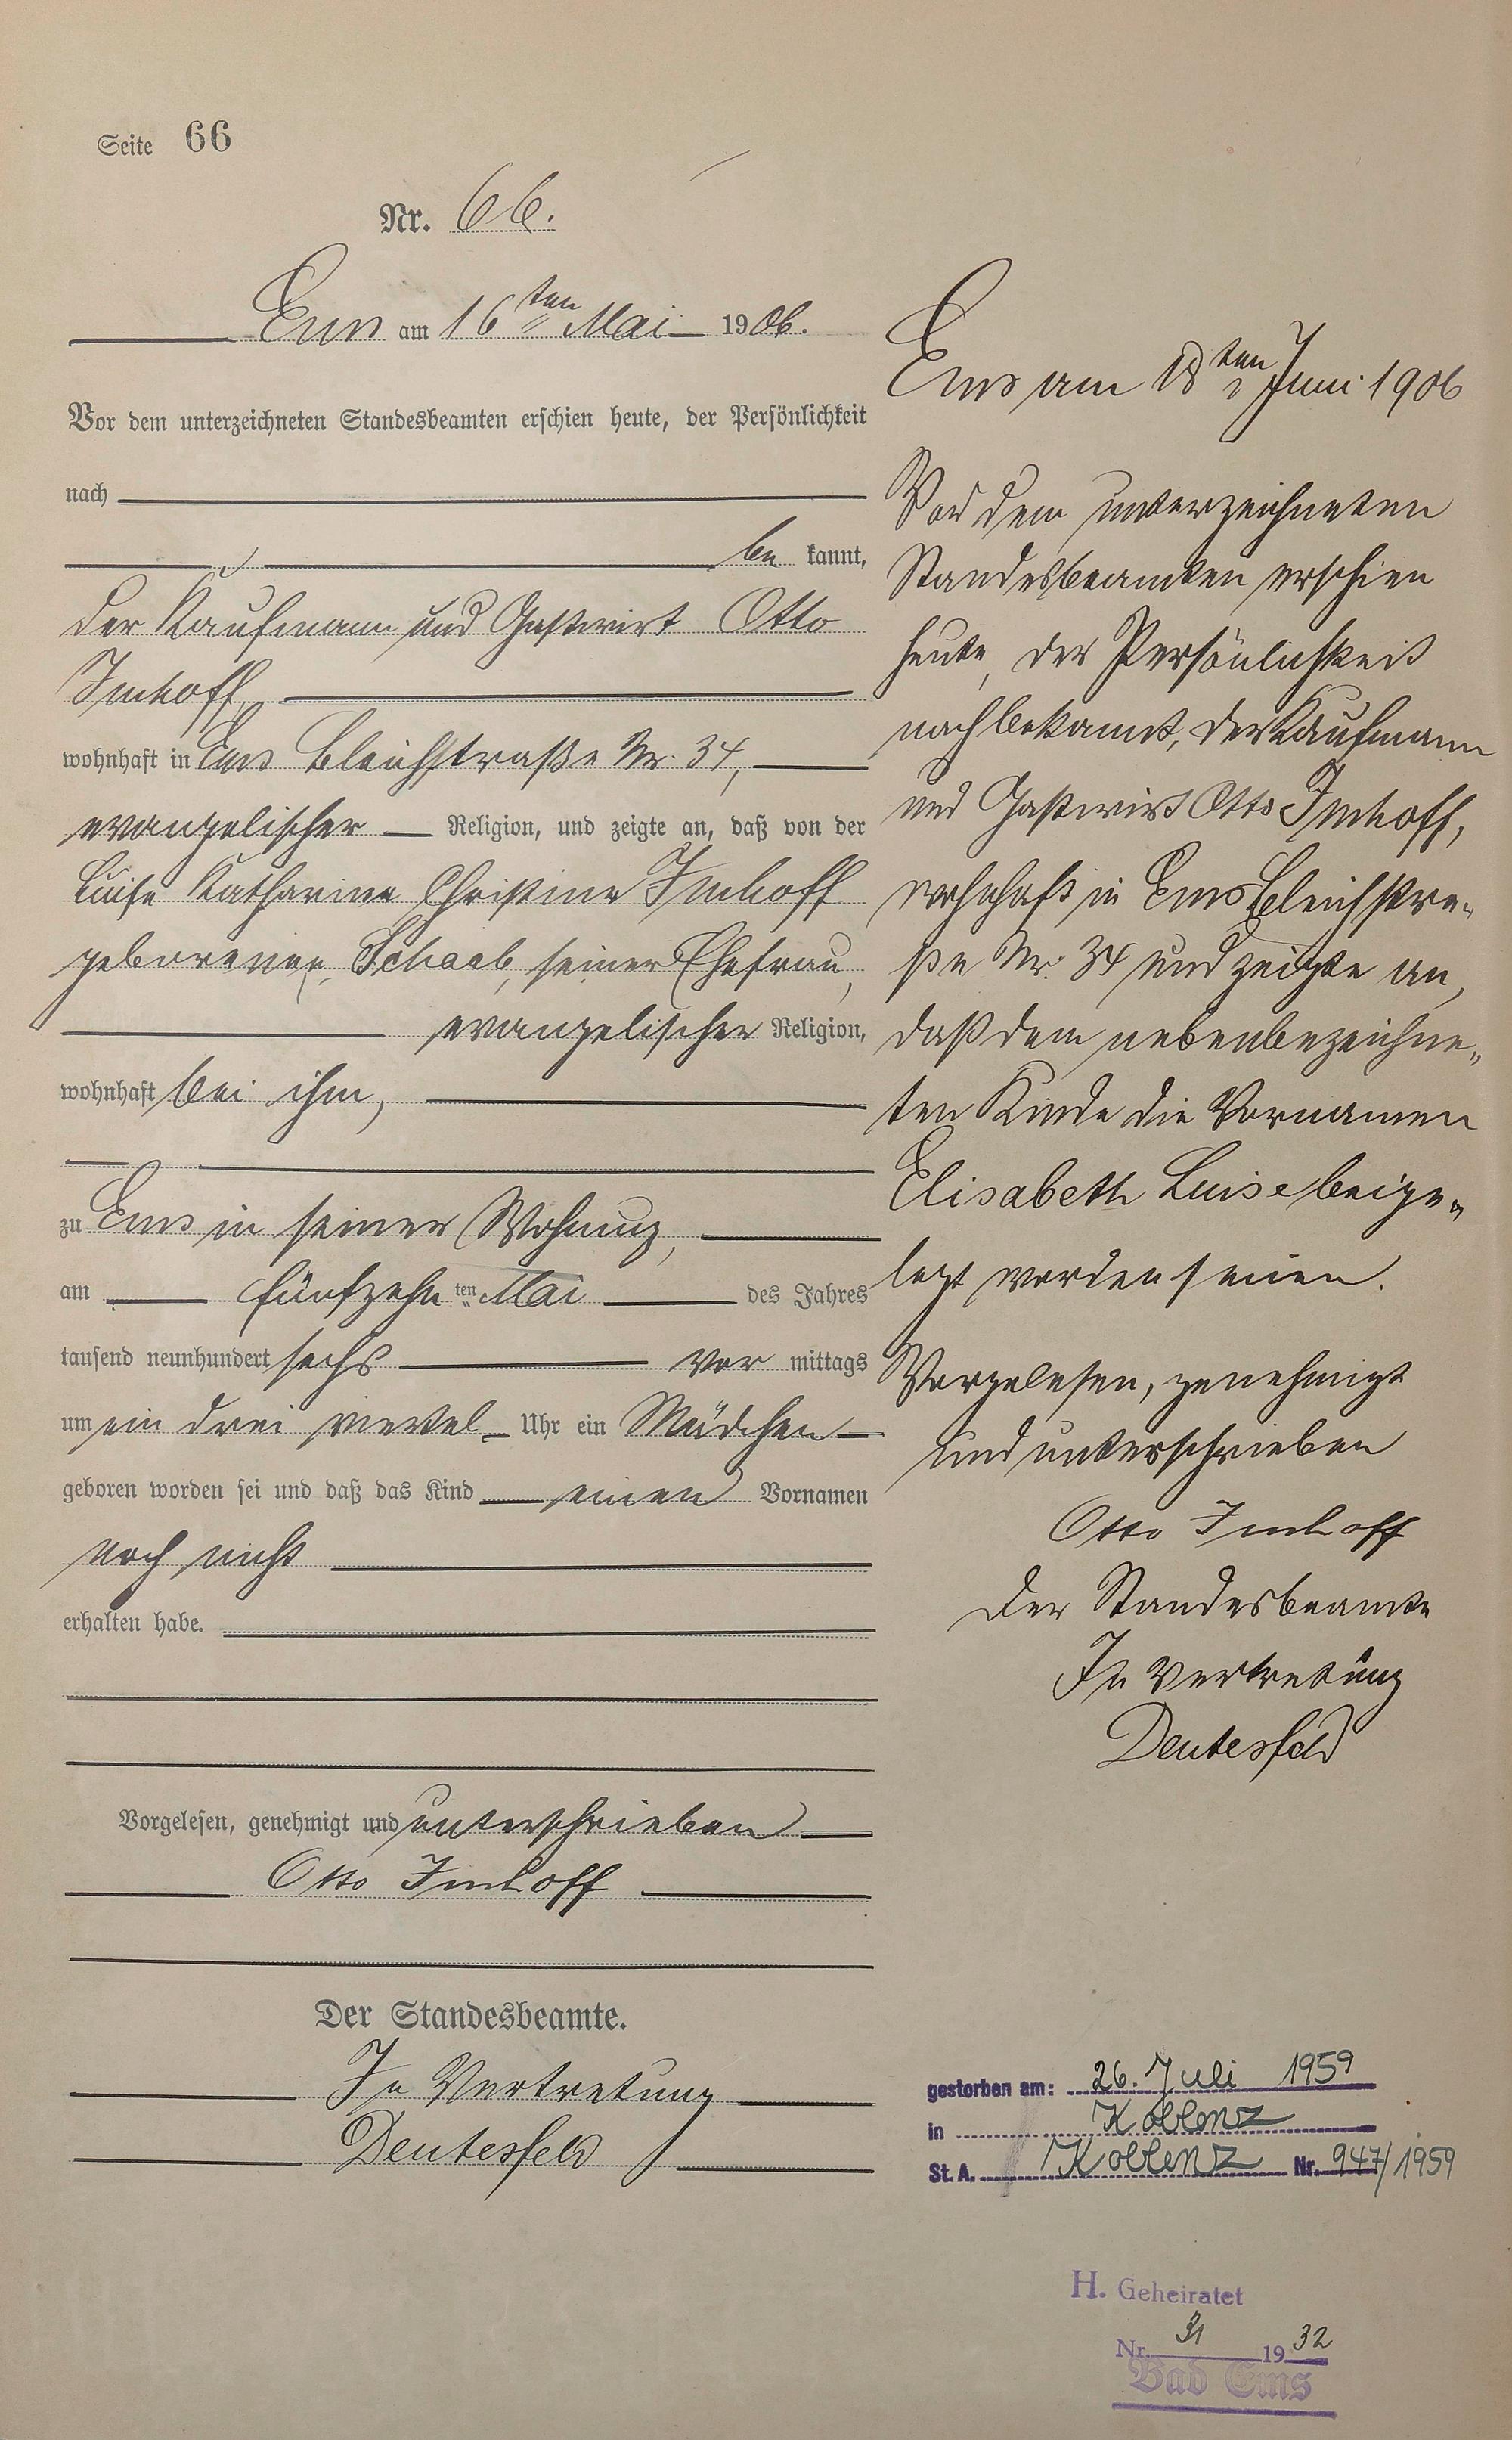 Seite 66
Nr. 66.
Ems am 16ten Mai 1906.
Vor dem unterzeichneten Standesbeamten erschien heute, der Persönlichkeit
nach
be kannt,
der Kaufmann und Gastwirt Otto
Imhoff,
wohnhaft in Ems Bleichstraße Nr. 34,
evangelischer Religion, und zeigte an, daß von der
Luise Katharina Christine Imhoff
geborenen Schaab, seiner Ehefrau,
evangelischer Religion,
wohnhaft bei ihm,
zu Ems in seiner Wohnung,
am fünfzehnten Mai des Jahres
tausend neunhundert sechs vor mittags
um ein drei viertel Uhr ein Mädchen
geboren worden sei und daß das Kind einen Vornamen
noch nicht
erhalten habe.
Vorgelesen, genehmigt und unterschrieben
Otto Imhoff
Der Standesbeamte.
In Vertretung
Deutesfeld
Ems am 18ten Juni 1906
Vor dem unterzeichneten
Standesbeamten erschien
heute, der Persönlichkeit
nach bekannt, der Kaufmann
und Gastwirt Otto Imhoff,
wohnhaft in Ems Bleichstra-
ße Nr. 34 und zeigte an,
daß dem nebenbezeichne-
ten Kinde die Vornamen
Elisabeth Luise beige-
legt worden seien.
Vorgelesen, genehmigt
und unterschrieben
Otto Imhoff
Der Standesbeamte
In Vertretung
Deutesfeld
gestorben am: 26. Juli 1959
in Koblenz
St. A. Koblenz Nr. 947/1959
H. Geheiratet
Nr. 31 1932
Bad Ems